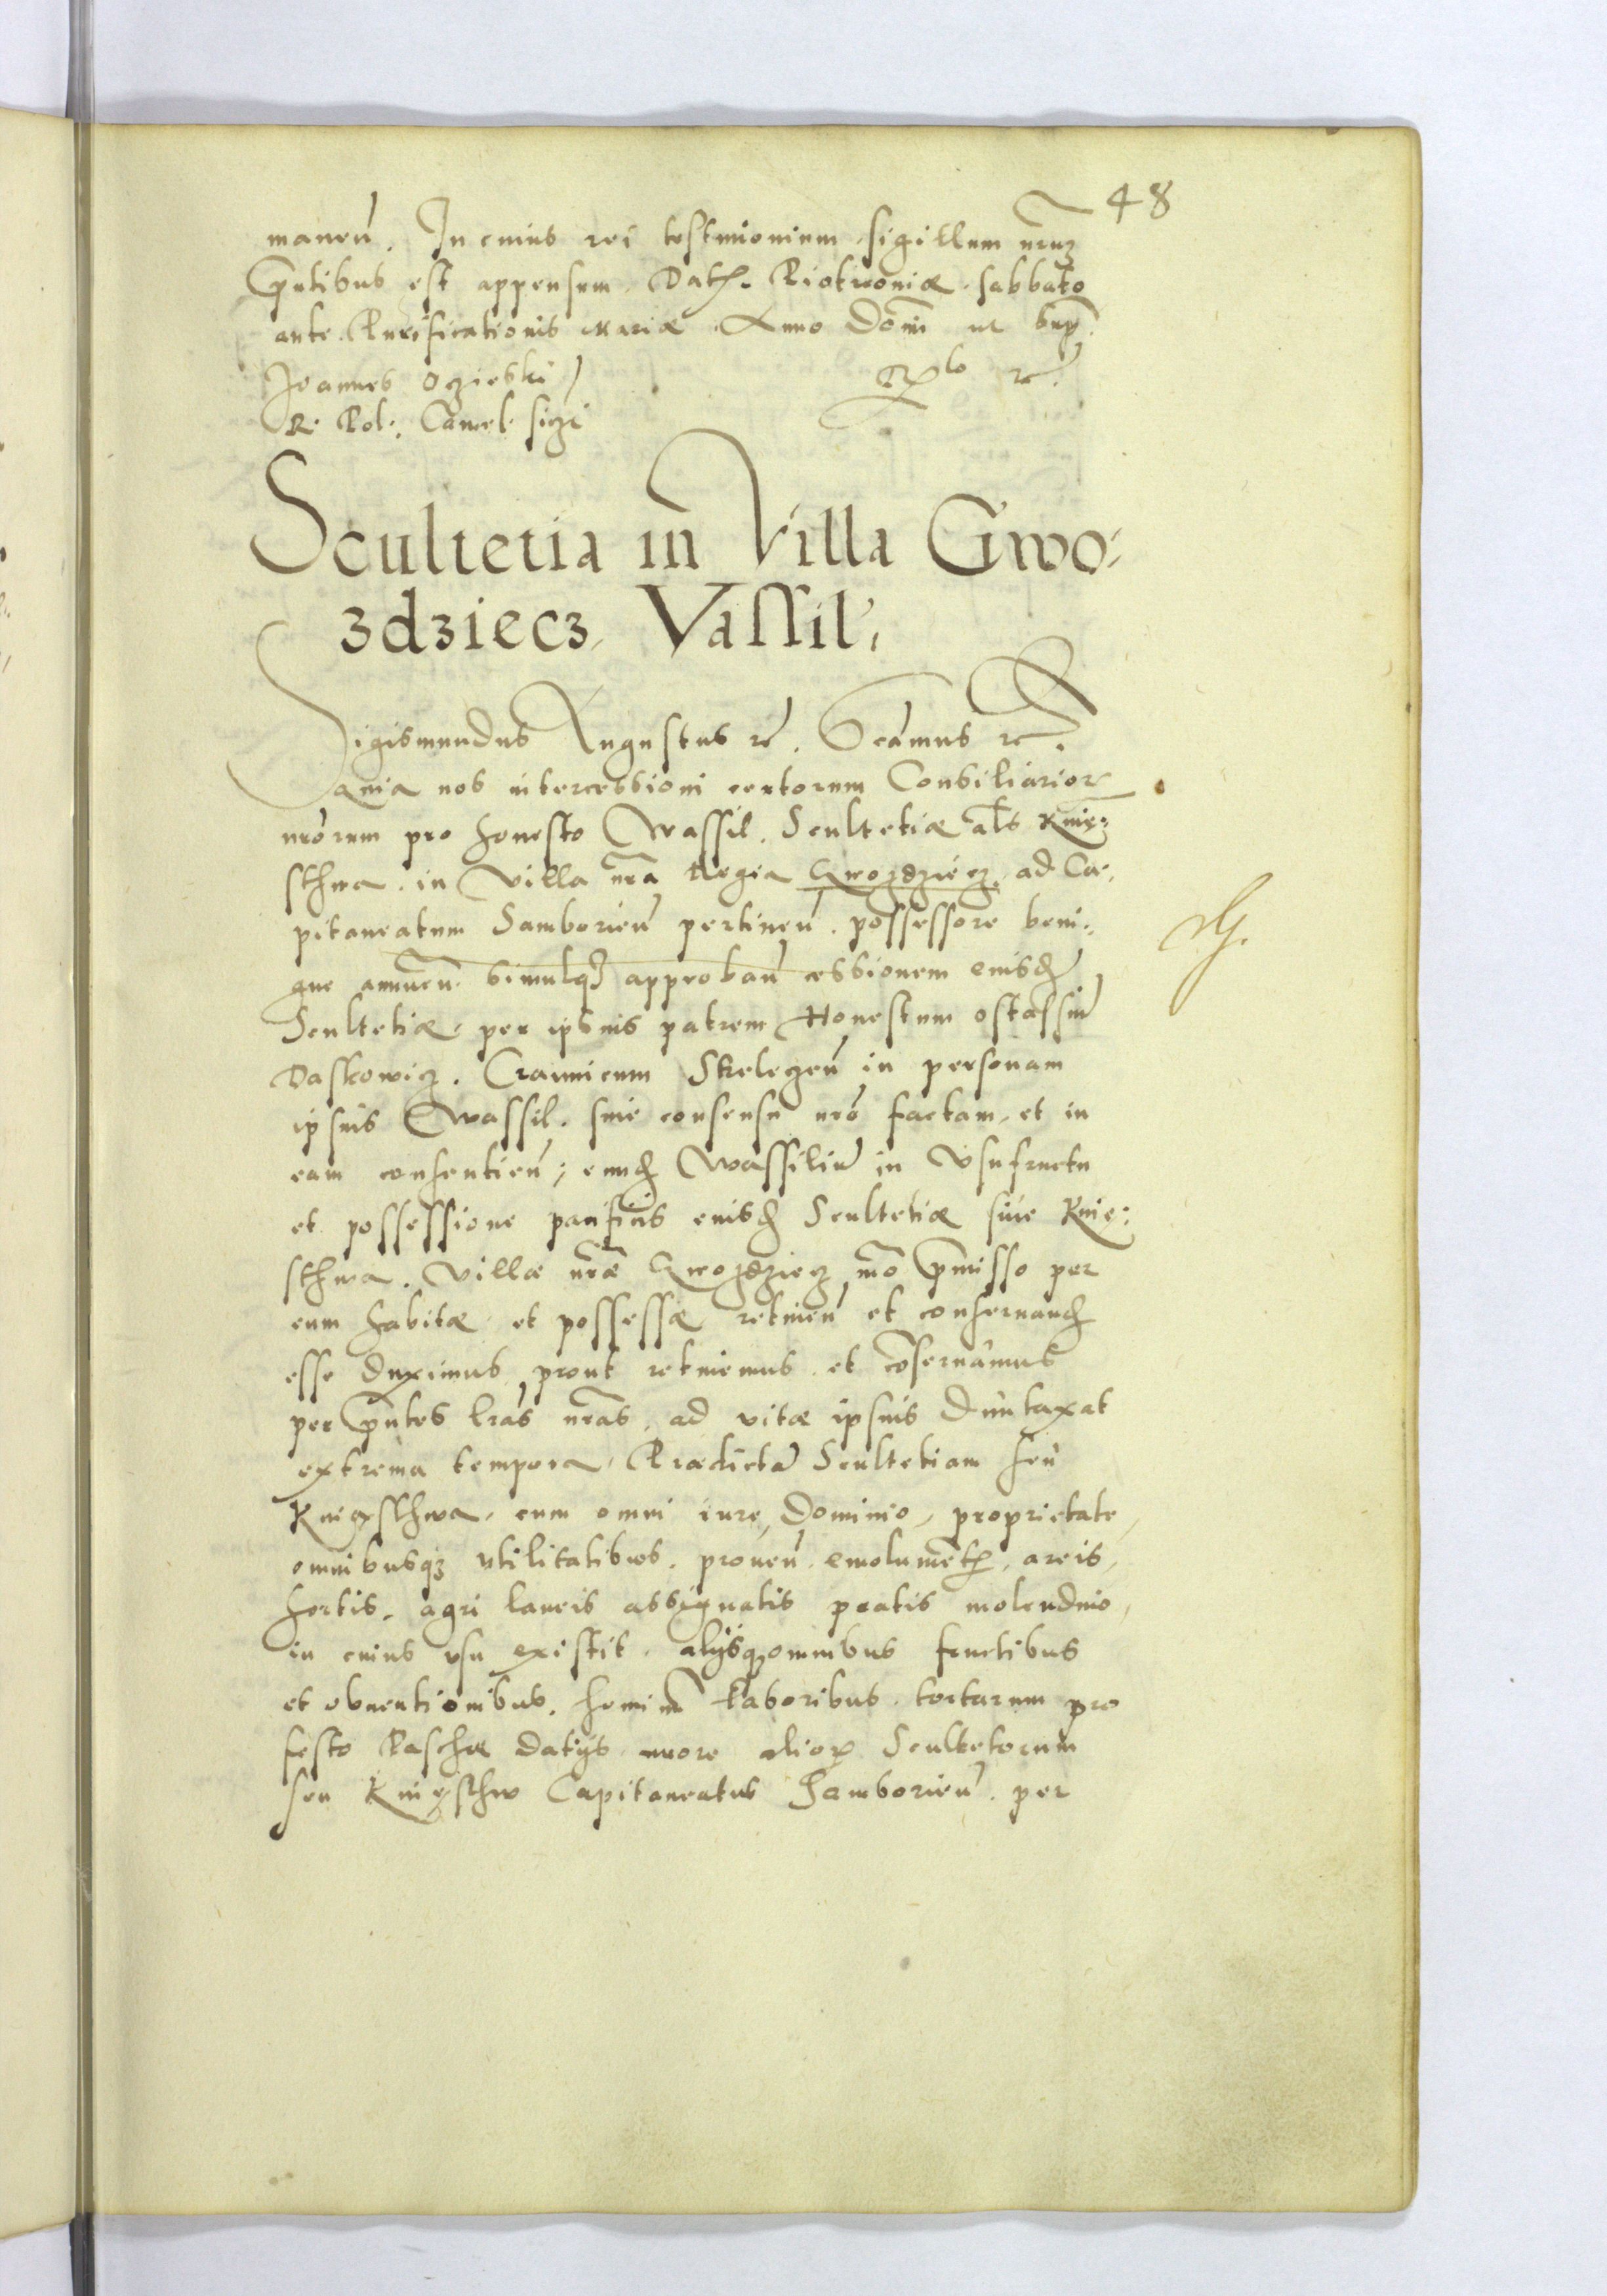 48
maneñ. In cuius rei testimonium sigillum nr̃uȝ
p̃ntibus est appensum. Dat. Piotrcoviæ. sabbato
ante Purificationis Mariæ. Anno Dom̃i ut supͣ.
Joannes Oczieski
R. Pol. Cancel. sczi
Scultetia in Villa Gwo⸗
zdziecz, Vassil,
Sigismundus Augustus ꝛc̃. Sc̃amus ꝛc̃.
Quia nos intercessioni certorum Consiliarior
nr̃orum pro honesto Wassil. Scultetiæ al̃s Knie⸗
sthwa. in Villa nr̃a Regia Gwozdziecz. ad Ca⸗
pitaneatum Samborieñ pertineñ. possessore beni⸗
gne annueñ. simulqȝ approbañ cessionem eiusd
Scultetiæ, per ipsius patrem Honestum Ostassiũ
Daskowicz. Cravnicum Strelczeñ in personam
ipsius Wassil. sine consensu nr̃o factam, et in
eam consentieñ, eund Wassiliũ in Usufructu
et possessione pacificis eiusd Scultetiæ sive Knie⸗
sthwa. Villæ nr̃æ Gwozdziecz mõ p̃misso per
eum habitæ et possessæ retineñ et conservand
esse duximus, prout retinemus et cõservamus
per p̃ntes lr̃as nr̃as, ad vitæ ipsius duntaxat
extrema tempora, Prædictã Scultetiam seu
Kniesthwa, cum omni iure, Dominio, proprietate,
omnibusqȝ utilitatibus. proveñ emolumẽt, areis,
hortis, agri laneis assignatis pratis molendino,
in cuius usu existit, alijsqȝ omnibus fructibus
et obventionibus. hominũ laboribus. tortarum pro
festo Paschæ datijs more alioꝝ Scultetorum
seu Kniesthw Capitaneatus Samborieñ. per